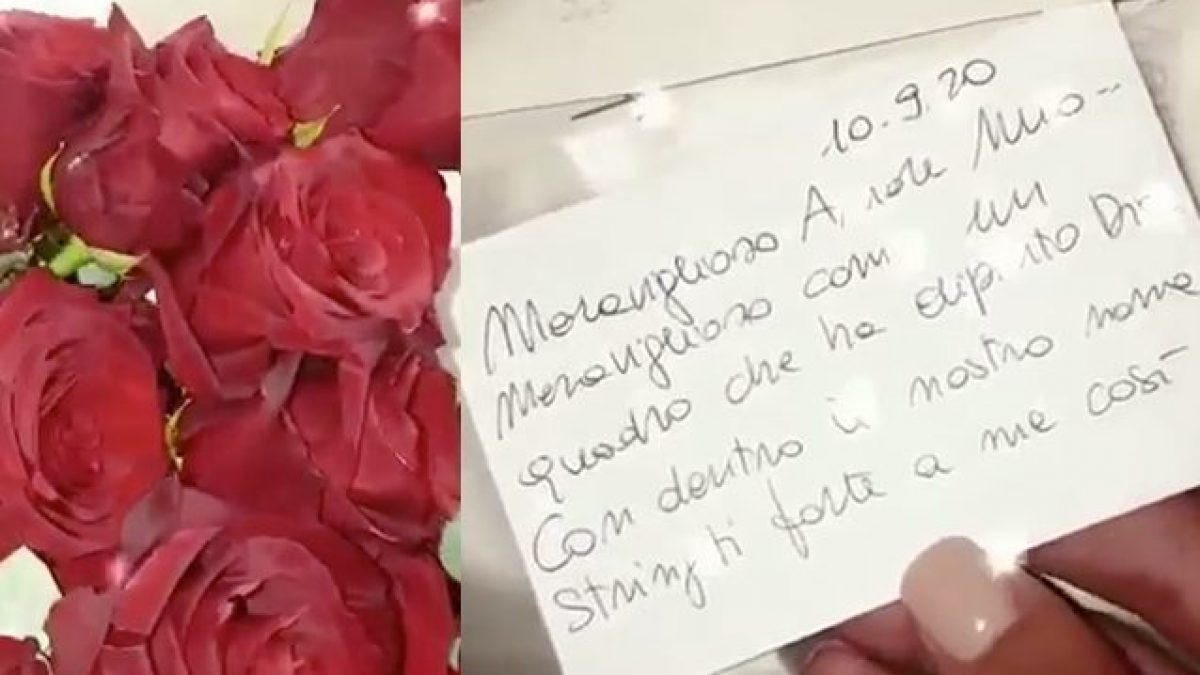 10.9.20
Meraviglioso Amore Mio--
Meraviglioso com un
quadro che ha dipinto Di-
Con dentro il nostro nome
Stringiti forte a me così